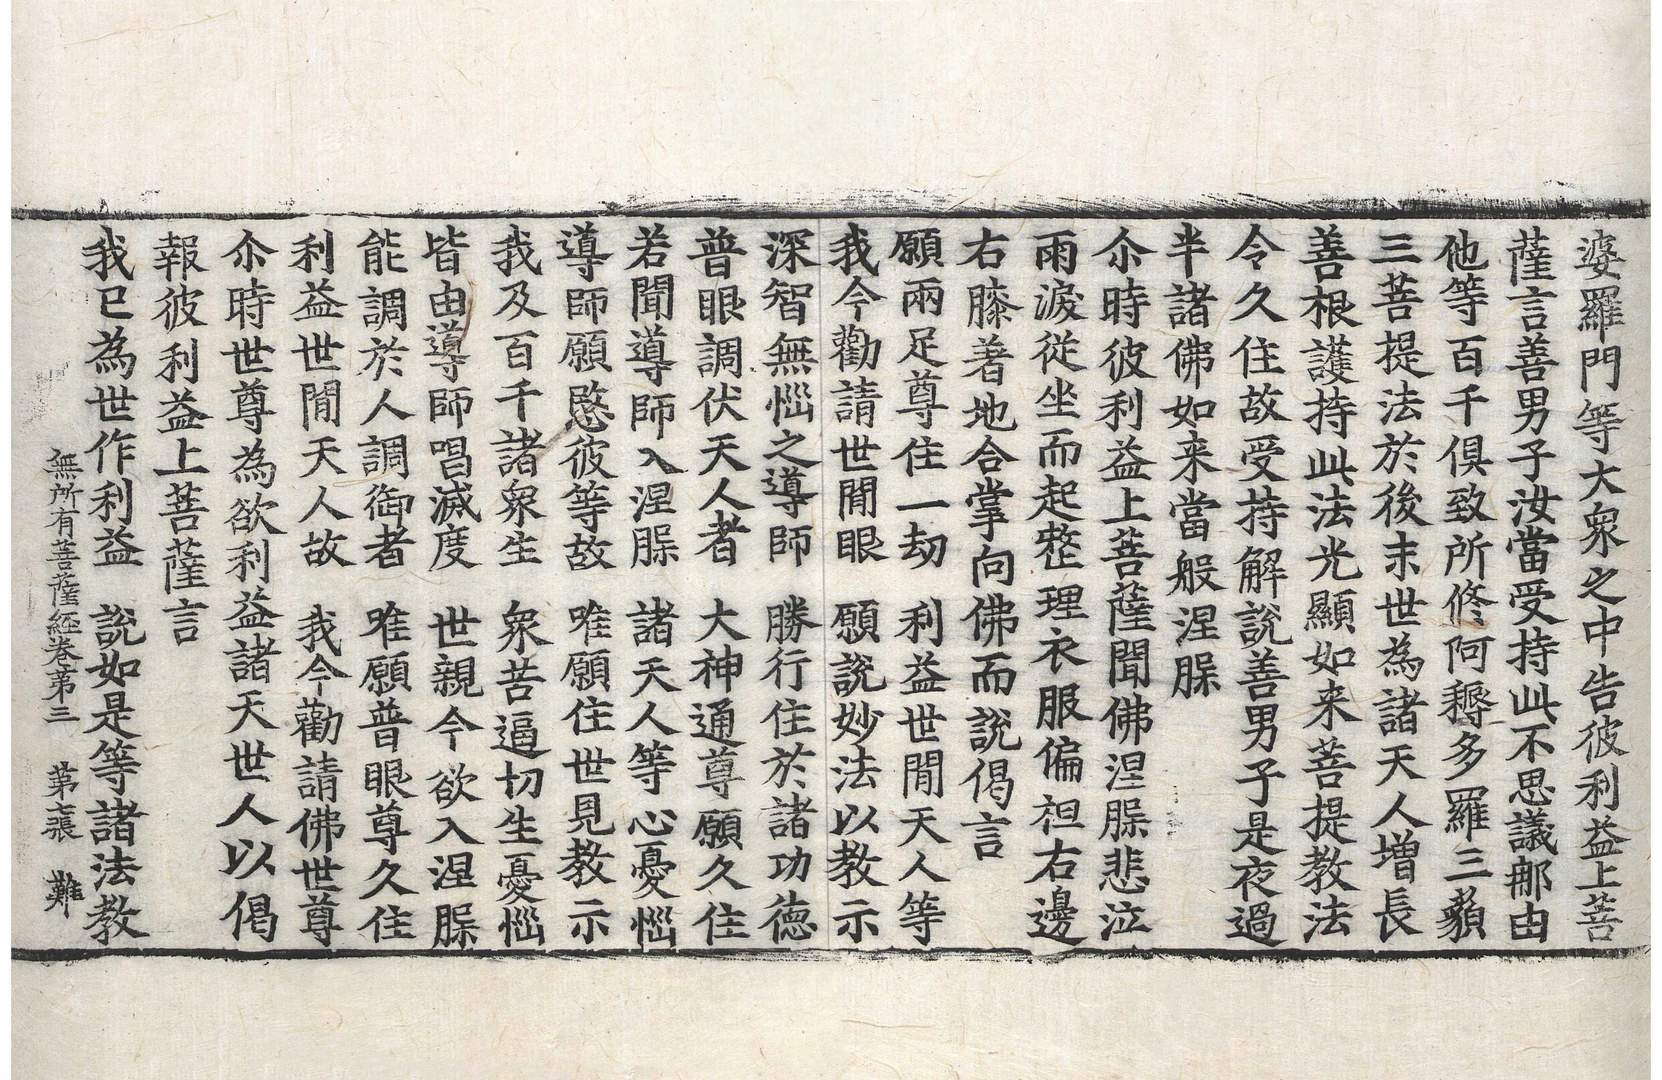 婆羅門等大衆之中告彼利益上菩
薩言善男子汝當受持此不思議那由
他等百千俱致所修阿耨多羅三藐
三菩提法於後末世為諸天人增長
善根護持此法光顯如来菩提教法
令久住故受持解說善男子是夜過
半諸佛如来當般涅槃
尒時彼利益上菩薩聞佛涅槃悲泣
雨淚從坐而起整理衣服偏袒右邊
右膝著地合掌向佛而說偈言
願兩足尊住一劫　利益世閒天人等
我今勸請世閒眼　願說妙法以教示
深智無惱之導師　勝行住於諸功德
普眼調伏天人者　大神通尊願久住
若聞導師入涅槃　諸天人等心憂惱
導師願愍彼等故　唯願住世見教示
我及百千諸衆生　衆苦逼切生憂惱
皆由導師唱滅度　世親今欲入涅槃
能調於人調御者　唯願普眼尊久住
利益世閒天人故　我今勸請佛世尊
尒時世尊為欲利益諸天世人以偈
報彼利益上菩薩言
我已為世作利益　說如是等諸法教
無所有菩薩經卷第三　第七張　難